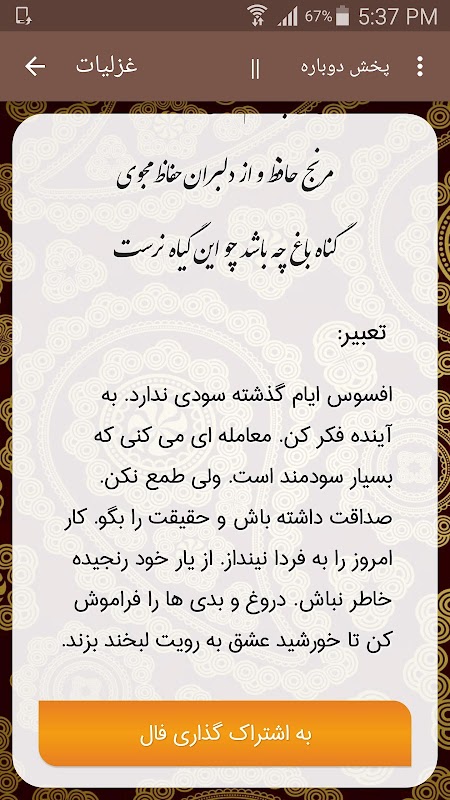 67% 5:37 PM
غزلیات || پخش دوباره
مرنج حافظ و از دلبران حفاظ مجوی
گناه باغ چه باشد چو این گیاه نرست
تعبیر:
افسوس ایام گذشته سودی ندارد. به
آینده فکر کن. معامله ای می کنی که
بسیار سودمند است. ولی طمع نکن.
صداقت داشته باش و حقیقت را بگو. کار
امروز را به فردا نینداز. از یار خود رنجیده
خاطر نباش. دروغ و بدی ها را فراموش
کن تا خورشید عشق به رویت لبخند بزند.
به اشتراک گذاری فال